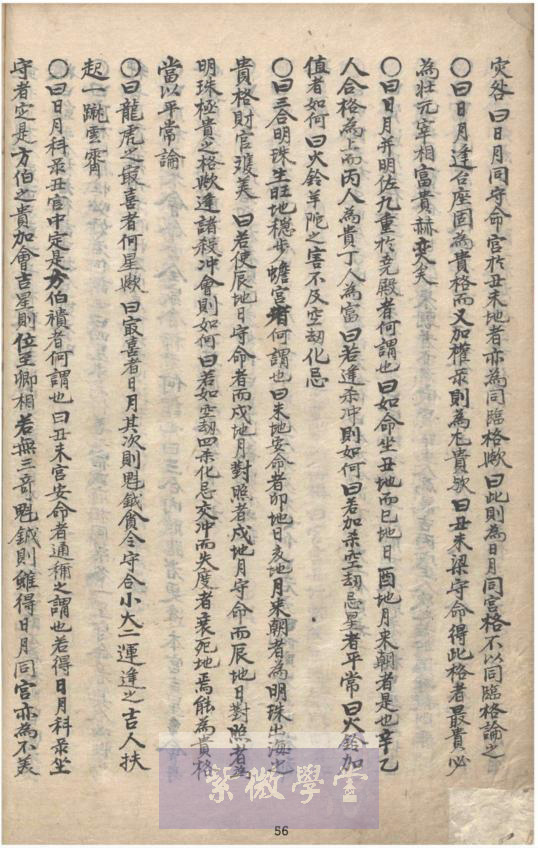 灾咎 曰日月同守命宮於丑未地者亦為同臨格歟 曰此則為日月同宮格不以同臨格論之
〇曰日月逢台座固為貴格而又加權彔則為尤貴歟 曰丑未梁守命得此格者最貴必
為壮元宰相富貴赫奕矣
〇曰日月并明佐九重於尭殿者何謂也曰如命坐丑地而巳地日酉地月来朝者是也辛乙
人合格為上而丙人為貴丁人為富曰若逢杀冲則如何曰若加杀空刼忌星者平常曰火鈴加
值者如何曰火鈴羊陀之害不及空刼化忌
〇曰三合明珠生旺地穏步蟾宮者何謂也曰未地安命者卯地日亥地月来朝者為明珠出海之
貴格財官䨇美 曰若使辰地日守命者而戍地月對照者戍地月守命而辰地日對照者為
明珠極貴之格歟逢諸殺冲會則如何曰若如空刼四杀化忌交冲而失度者衰死地焉能為貴格
當以平常論
〇曰龍虎之㝡喜者何星歟 曰㝡喜者日月其次則魁鉞貪令守合小大二運逢之吉人扶
起一蹴雲霄
〇曰日月科彔丑宮中定是方伯禎者何謂也曰丑未宮安命者通稱之謂也若得日月科彔坐
守者定是方伯之貴加會吉星則位至卿相若無三奇魁鉞則雖得日月同宮亦為不美
紫微學堂
56